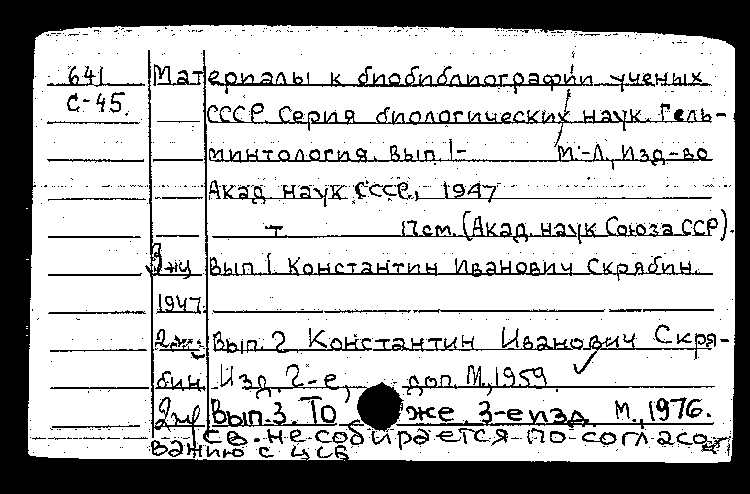 641 Материалы к биобиблиографии ученых
С-45. СССР. Серия биологических наук. Гель-
минтология. Вып. 1- М.-Л., Изд-во
Акад. наук СССР, 1947
т 17см. (Акад. наук Союза ССР).
Вып. 1. Константин Иванович Скрябин.
1947.
2 Вып. 2 Константин Иванович Скря-
бин. Изд. 2-е, доп. М., 1959.
Вып. 3. То же. 3-е изд. М., 1976.
св. не собирается по согласо-
ванию с ЦСБ